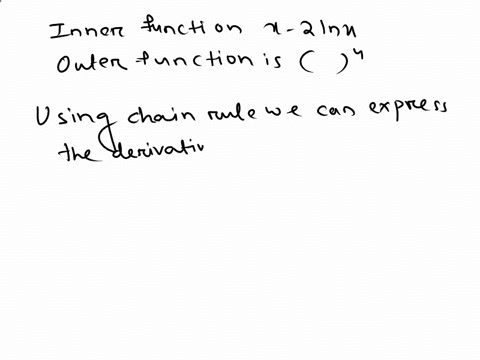 Inner function x - 2lnx
Outer function is ( )⁴
Using chain rule we can express
the derivativ